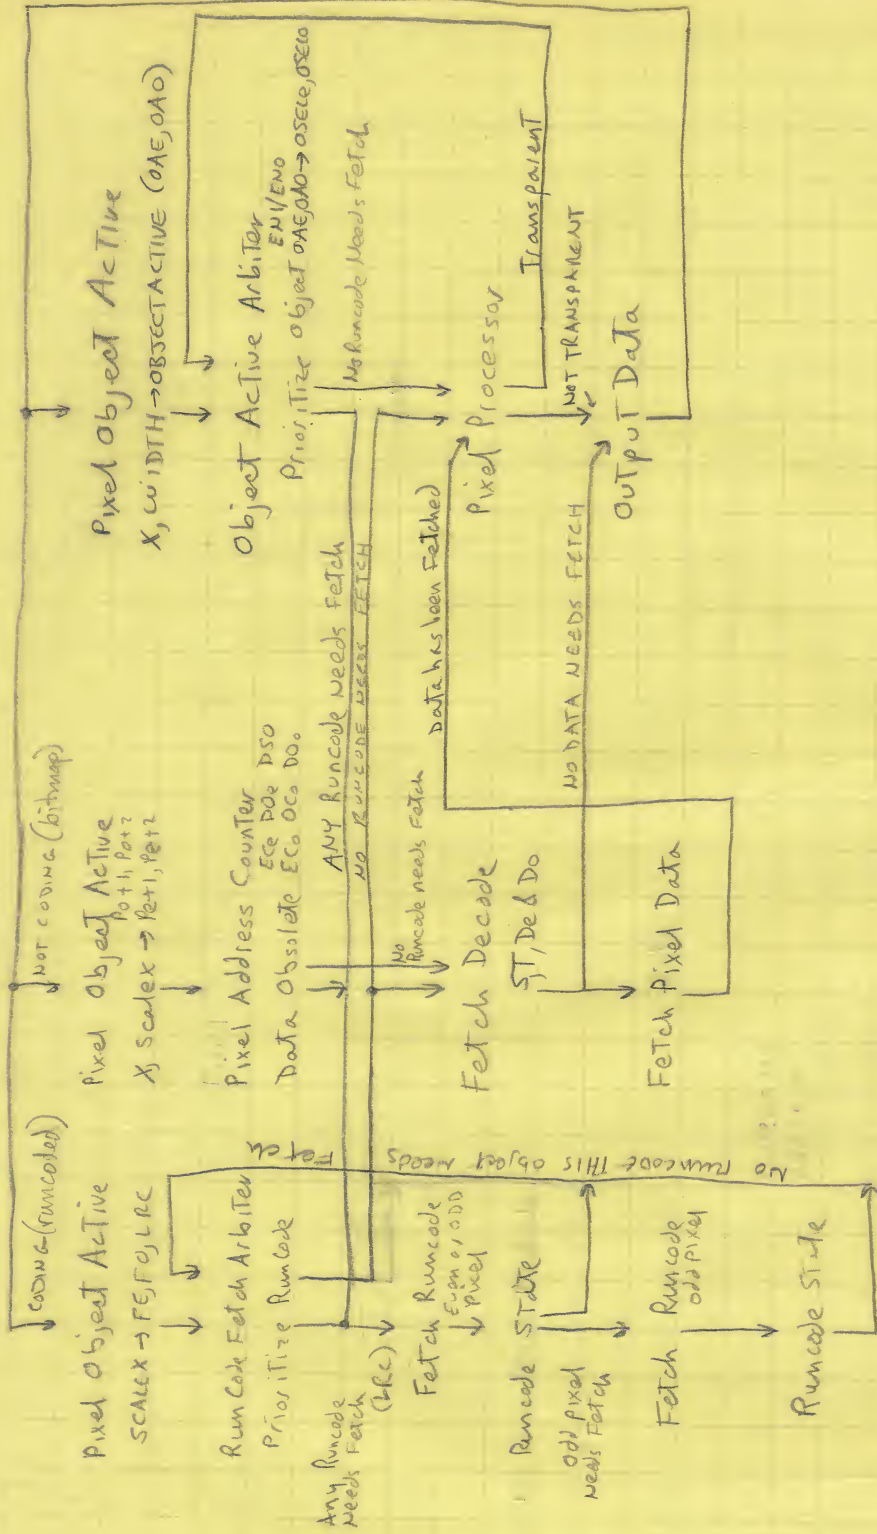 CODING (runcoded)
Pixel Object Active
SCALEX → FE, FO, LRC
Run Code Fetch Arbiter
Prioritize RunCode
Any Runcode
Needs Fetch
(LRC)
Fetch Runcode
Even or ODD
Pixel
Runcode State
odd pixel
Needs Fetch
Fetch Runcode
odd pixel
Runcode State
No runcode THIS object needs
Fetch
NOT CODING (bitmap)
Pixel Object Active
Po+1, Po+2
X, Scalex → Pe+1, Pe+2
Pixel Address Counter
ECe DOe DSO
Data Obsolete ECo OCo DOo
ANY Runcode Needs Fetch
NO RUNCODE NEEDS FETCH
No
Runcode needs Fetch
Fetch Decode
ST, De & Do
Fetch Pixel Data
Data has been Fetched
NO DATA NEEDS FETCH
Pixel Object Active
X, WIDTH → OBJECT ACTIVE (OAE, OAO)
Object Active Arbiter
EN1/ENO
Prioritize Object OAE, OAO → OSELE, OSELO
No Runcode Needs Fetch
Pixel Processor
Transparent
NOT TRANSPARENT
Output Data